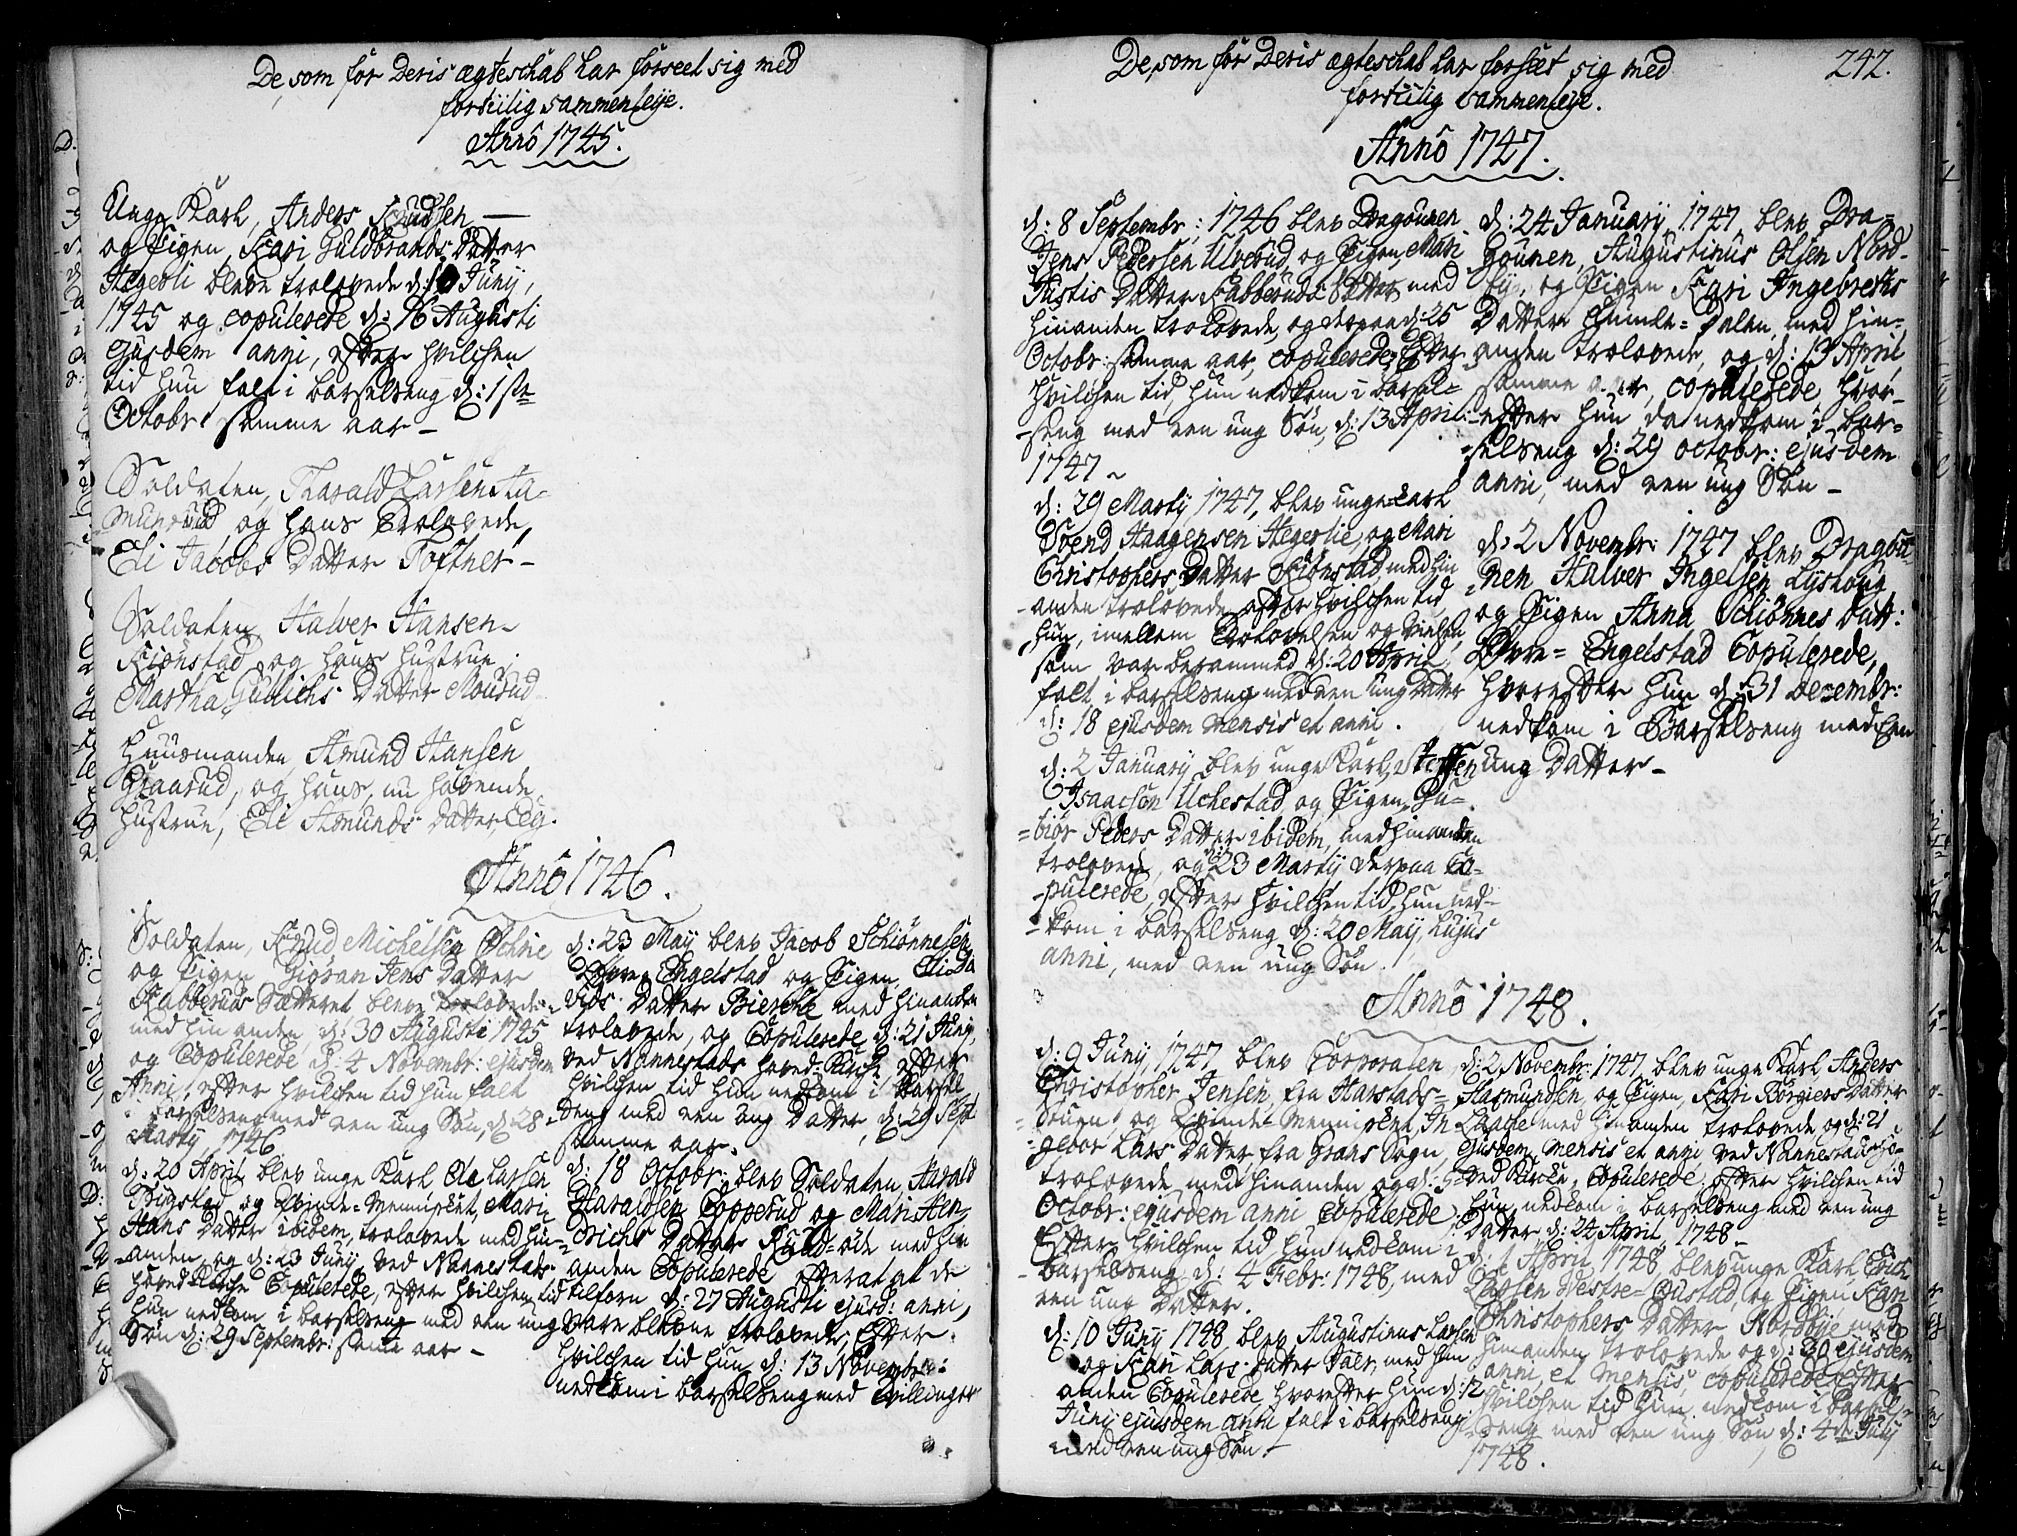 De, som før deris ægteschab har forseet sig med
fortiilig sammenleije.
Anno 1745.
Unge Karl, Anders Knudsen
og Pigen, Kari Guldbrands Datter
Hegerli bleve trolovede d: 10 Junij,
1745 og copulerede d: 16 Augusti
ejusdem anni, efter hvilchen
tid hun falt i barselseng d: 1ste
Octobr: samme aar –
Soldaten, Harald Larsen Aa-
mundrud og hans Trolovede,
Eli Jacobs Datter Toftner –
Soldaten Halver Hansen
Kiønstad og hans hustrue,
Martha Gullichs Datter Mourud
Huusmanden Amund Hansen
Graarud, og hans nu havende
hustrue, Eli Amunds Datter, Eeg.
Anno 1746.
Soldaten, Knud Michelsen
og Pigen Giøran Jens Datter
Kabberud Sætteret blev trolovede
med hinanden, d: 30 Augusti 1745
og Copulerede d: 4 Novembr: ejusdem
Anni, efter hvilchen tid hun falt
i barselseng med een ung Søn, d: 28
Martij 1746.
d: 20 April blev unge Karl Ole Larsen
Ringstad og Qvinde-Mennisket, Mari
Hans Datter ibidem, trolovede med hin-
anden, og d: 23 Junij, ved Nannestads
hoved Kirche Copulerede, efter hvilchen tid
hun nedkom i barselseng med een ung
Søn d: 29 Septembr: samme aar –
d: 23 Maij blev Jacob Schiønnesen
Øvre Engelstad og Pigen Eli Da-
vids Datter Bierche med hinanden
trolovede, og Copulerede d: 21 Junij,
ved Nannestads hoved-Kirche, efter
hvilchen tid hun nedkom i barsel-
seng med een ung Datter, d: 29 Sept
samme aar.
d: 18 Octobr: blev Soldaten, Harald
Haraldsen Copperud og Mari Hen-
drichs Datter Ruud-øde med hin
anden Copulerede efter at de
tilforn d: 27 Augusti ejusd: anni,
vare blevne trolovede; Efter
hvilchen tid hun d: 13 Novembr:
nedkom i barselseng med Tvillinger
De, som før deris ægteschab har forseet sig med
fortiilig sammenleije.
242.
Anno 1747.
d: 8 Septembr: 1746 blev Dragounen
Jens Pedersen Ulverud, og Pigen, Mari
Justis Datter Kabberuds Sætter med
hinanden trolovede, og derpaa d: 25
Octobr: samme aar, copulerede; Efter
hvilchen tid, hun nedkom i barsel-
-seng med een ung Søn, d: 13 April
1747 ~
d: 29 Martij 1747, blev unge karl
Svend Haagensen Hegerlie, og Mari
Christophers Datter Kiønstad, med hin
-anden trolovede, efter hvilchen tid
hun, imellem Trolovelsen og vielsen,
som var berammed d: 20 April,
falt i barselseng med een ung Datter
d: 18 ejusdem mensis et anni.
d: 2 Januarij blev unge Karl, Steffen
Isaacsen Uchestad, og Pigen, Gu-
=biør Peders Datter ibidem, med hinanden
trolovede, og d: 23 Martij derpaa Co-
-pulerede, efter hvilchen tid, hun ned-
-kom i barselseng d: 20 Maij, hujus
anni, med een ung Søn.
d: 24 Januarij, 1747, blev Dra-
gounen, Augustinus Olsen Nord-
bye, og Pigen Kari Ingebreths
Datter Humle-dalen, med hin-
anden trolovede, og d: 13 April
samme aar, copulerede, hvor-
efter hun da nedkom i bar-
selseng d: 29 octobr: ejusdem
anni, med een ung Søn –
d: 2 Novembr: 1747 blev Dragou-
nen Halver Ingelsen Lystoug
og Pigen Anna Schiønnes Datt:
Øvre-Engelstad Copulerede,
hvorefter hun d: 31 Decembr:
nedkom i Barselseng med Een
ung Datter –
Anno 1748.
d: 9 Junij, 1747 blev Corporalen,
Christopher Jensen, fra Harstads-
Stuen og Qvinde-Mennisket, In-
geboe Lars Datter, fra Grans Sogn,
trolovede med hinanden og d: 5
Octobr: ejusdem anni Copulerede;
Efter hvilchen tid hun nedkom i
barselseng d: 4 Febr: 1748, med
een ung Datter.
d: 10 Junij 1748 blev Augustinus Larsen
og Kari Lars datter Paer med hin
anden Copulerede hvorefter hun d: 12
Junij ejusdem anni falt i barselseng
med een ung Søn –
d: 2 Novembr: 1747, blev unge Karl Anders
Rasmundsen, og Pigen, Kari Børgiers Datter
Lhatte med hinanden trolovede, og d: 21
Ejusdem mensis et anni ved Nannestads ho-
ved Kirche, Copulerede; efter hvilchen tid
hun nedkom i barselseng med een ung
Datter d: 24 April, 1748 –
d: 1 April, 1748 blev unge Karl, Erich
Larsen Westre-Bustad, og Pigen Kari
Christophers Datter Nordbye med
hinanden trolovede og d: 30 ejusdem
anni, et mensis, copulerede, efter
hvilchen tid hun nedkom i barsel-
seng med een ung Søn, d: 4de Julij
1748.